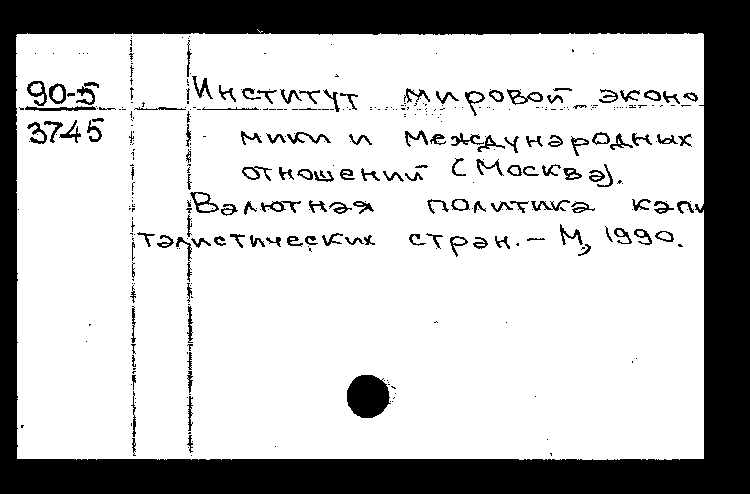 90-5
3745
Институт мировой эконо
мики и международных
отношений (Москва).
Валютная политика капи
талистических стран. – М, 1990.